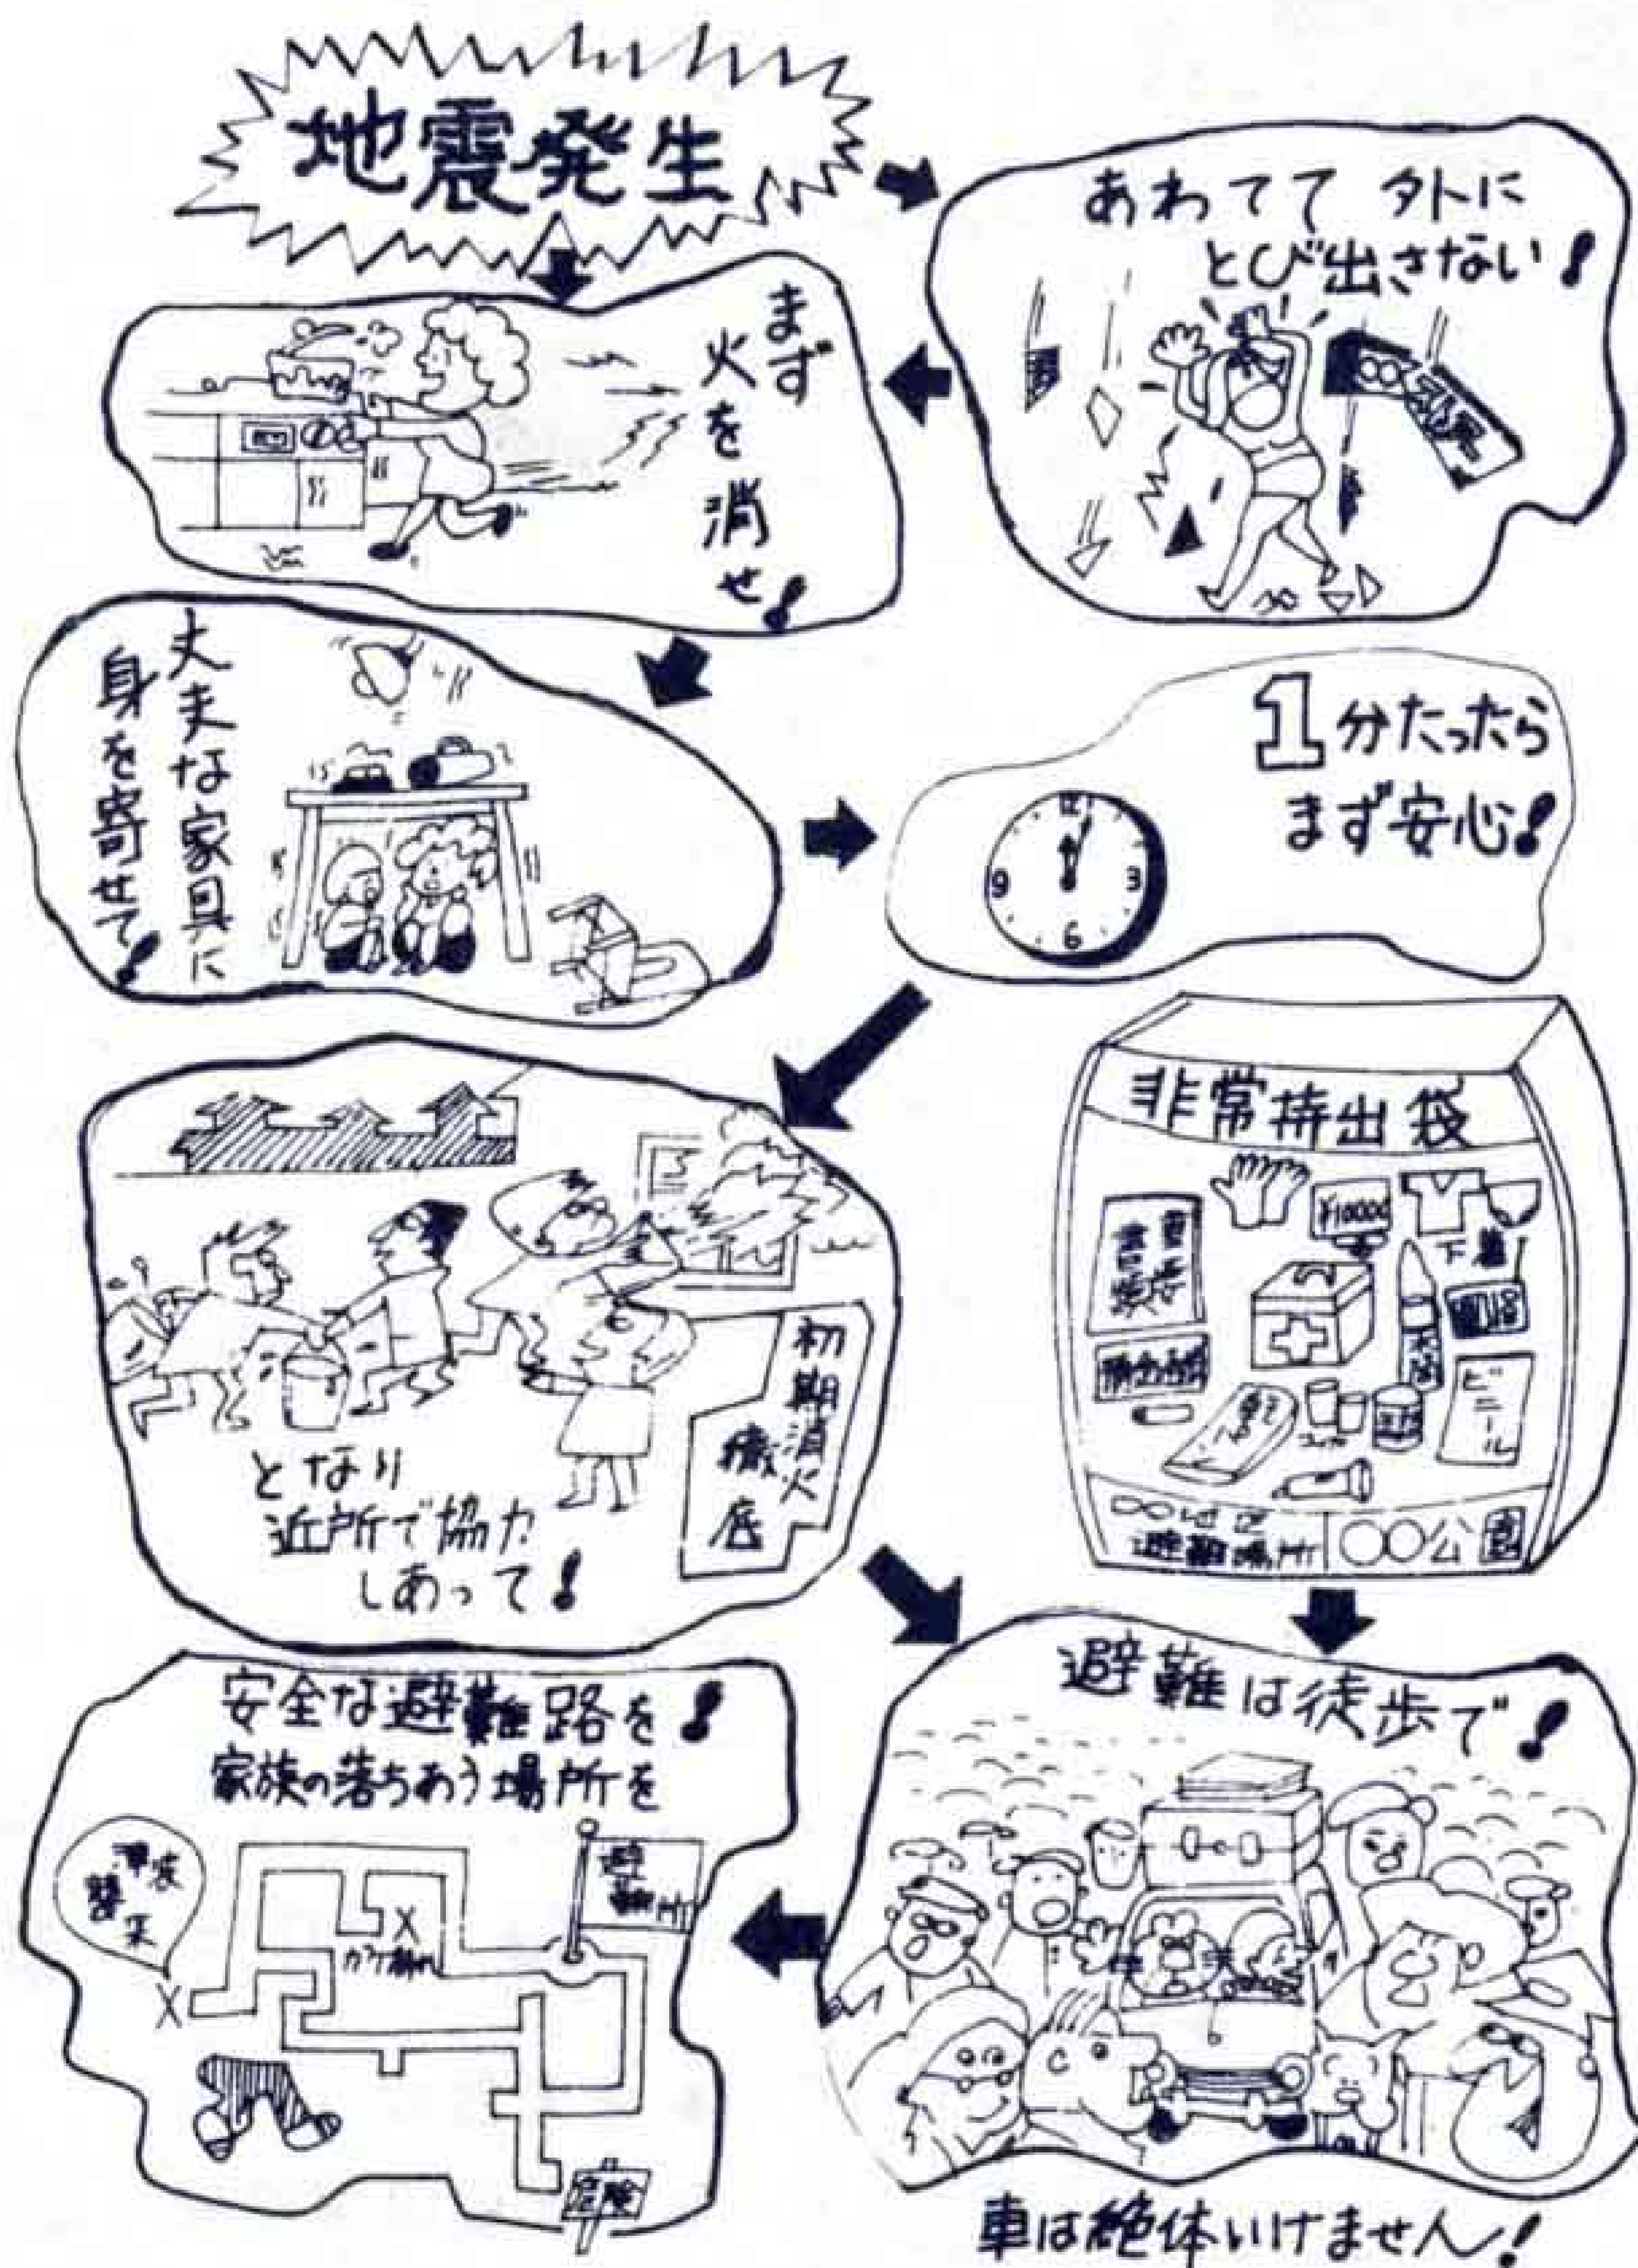 地震発生
あわてて外に
とび出さない!
まず
火を消せ!
丈夫な家具に
身を寄せて!
1分たったら
まず安心!
12
3
6
9
となり
近所で協力
しあって!
初期消火
徹底
非常持出袋
¥10000
下着
重要
書類
ビニール
避難場所
〇〇公園
避難は徒歩で!
車は絶体いけません!
安全な避難路を!
家族の落ちあう場所を
避難所
ガケ崩れ
津波
襲来
危険